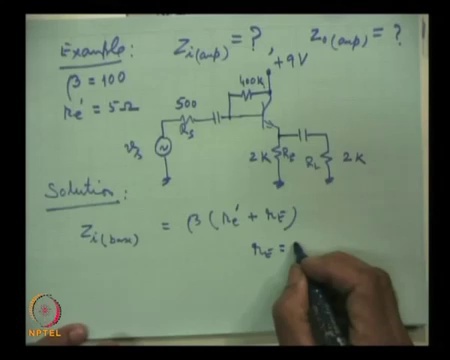 Example: Zi(amp) = ? , Zo(amp) = ?
β = 100
re' = 5Ω
+9V
400K
500
Rs
vs
2K RE
RL 2K
Solution:
Zi(base) = β (re' + rE)
rE =
NPTEL